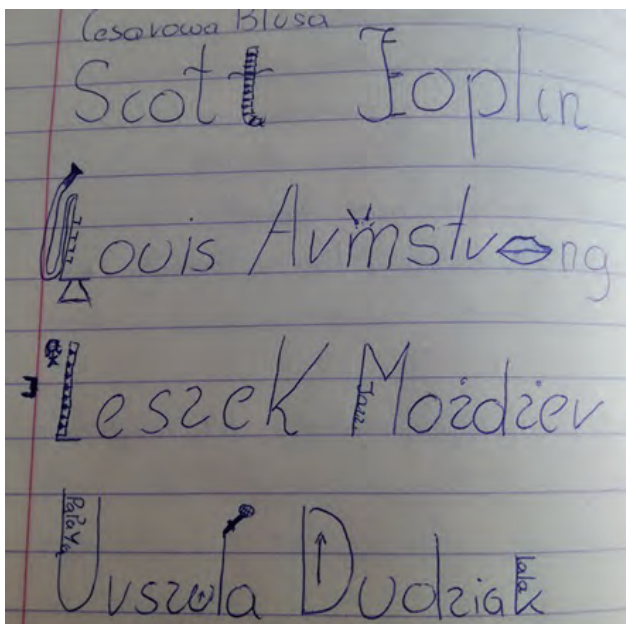 Cesarowa Blusa
Scott Joplin
Louis Armstrong
Leszek Możdżer
Jazz
PaPaYa
Urszula Dudziak
lala